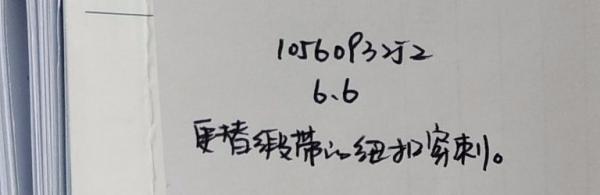 105609322
6.6
更替缎带的纽扣穿刺。